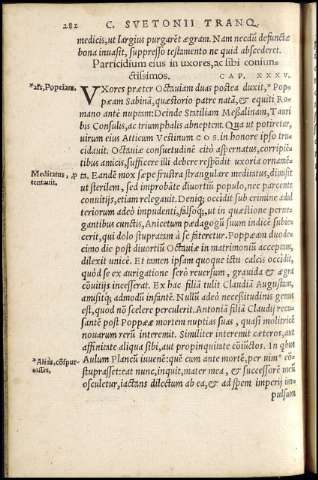 282 C. SVETONII TRANQ.
medicis, ut largius purgarēt ægram. Nam necdū defunctæ
bona inuasit, suppresso testamento ne quid abscederet.
Parricidium eius in uxores, ac sibi coniun-
ctissimos. CAP. XXXV.
*als, Poppeiam. VXores præter Octauiam duas postea duxit,* Pop-
pæam Sabinā, quæstorio patre natā, & equiti Ro-
mano antè nuptam: Deinde Statiliam Messalinam, Tauri
bis Consulis, ac triumphalis abneptem. Qua ut potiretur,
uirum eius Atticum Vestinum COS. in honore ipso tru-
cidauit. Octauiæ consuetudinē citò aspernatus, corripiē-
tibus amicis, sufficere illi debere respōdit uxoria ornamē-
Meditatus, ta. Eandē mox sæpe frustra strangulare meditatus, dimisit
tentauit.
ut sterilem, sed improbāte diuortiū populo, nec parcente
conuitijs, etiam relegauit. Deniq; occidit sub crimine adul
teriorum adeò impudenti, falsoq́;, ut in quæstione perne-
gantibus cunctis, Anicetum pædagogū suum indicē subie-
cerit, qui dolo stupratam à se fateretur. Poppæam duode-
cimo die post diuortiū Octauiæ in matrimonium acceptam,
dilexit unicè. Et tamen ipsam quoque ictu calcis occidit,
quòd se ex aurigatione serò reuersum, grauida & ægra
cōuitijs incesserat. Ex hac filiā tulit Claudiā Augustam,
amisitq́; admodū infantē. Nullū adeò necessitudinis genus
est, quod nō scelere perculerit. Antoniā Claudij filiā recu-
santē post Poppææ mortem nuptias suas, quasi molitricē
nouarum rerū interemit. Similiter interemit cæteros, aut
affinitate aliqua sibi, aut propinquitate cōiūctos. In quibus
Aulum Plancū iuuenē: quē cum ante mortē, per uim* cō-
stuprasset: eat nunc, inquit, mater mea, & successorē meū
osculetur, iactans dilectum ab ea, & ad spem imperij im-
pulsum